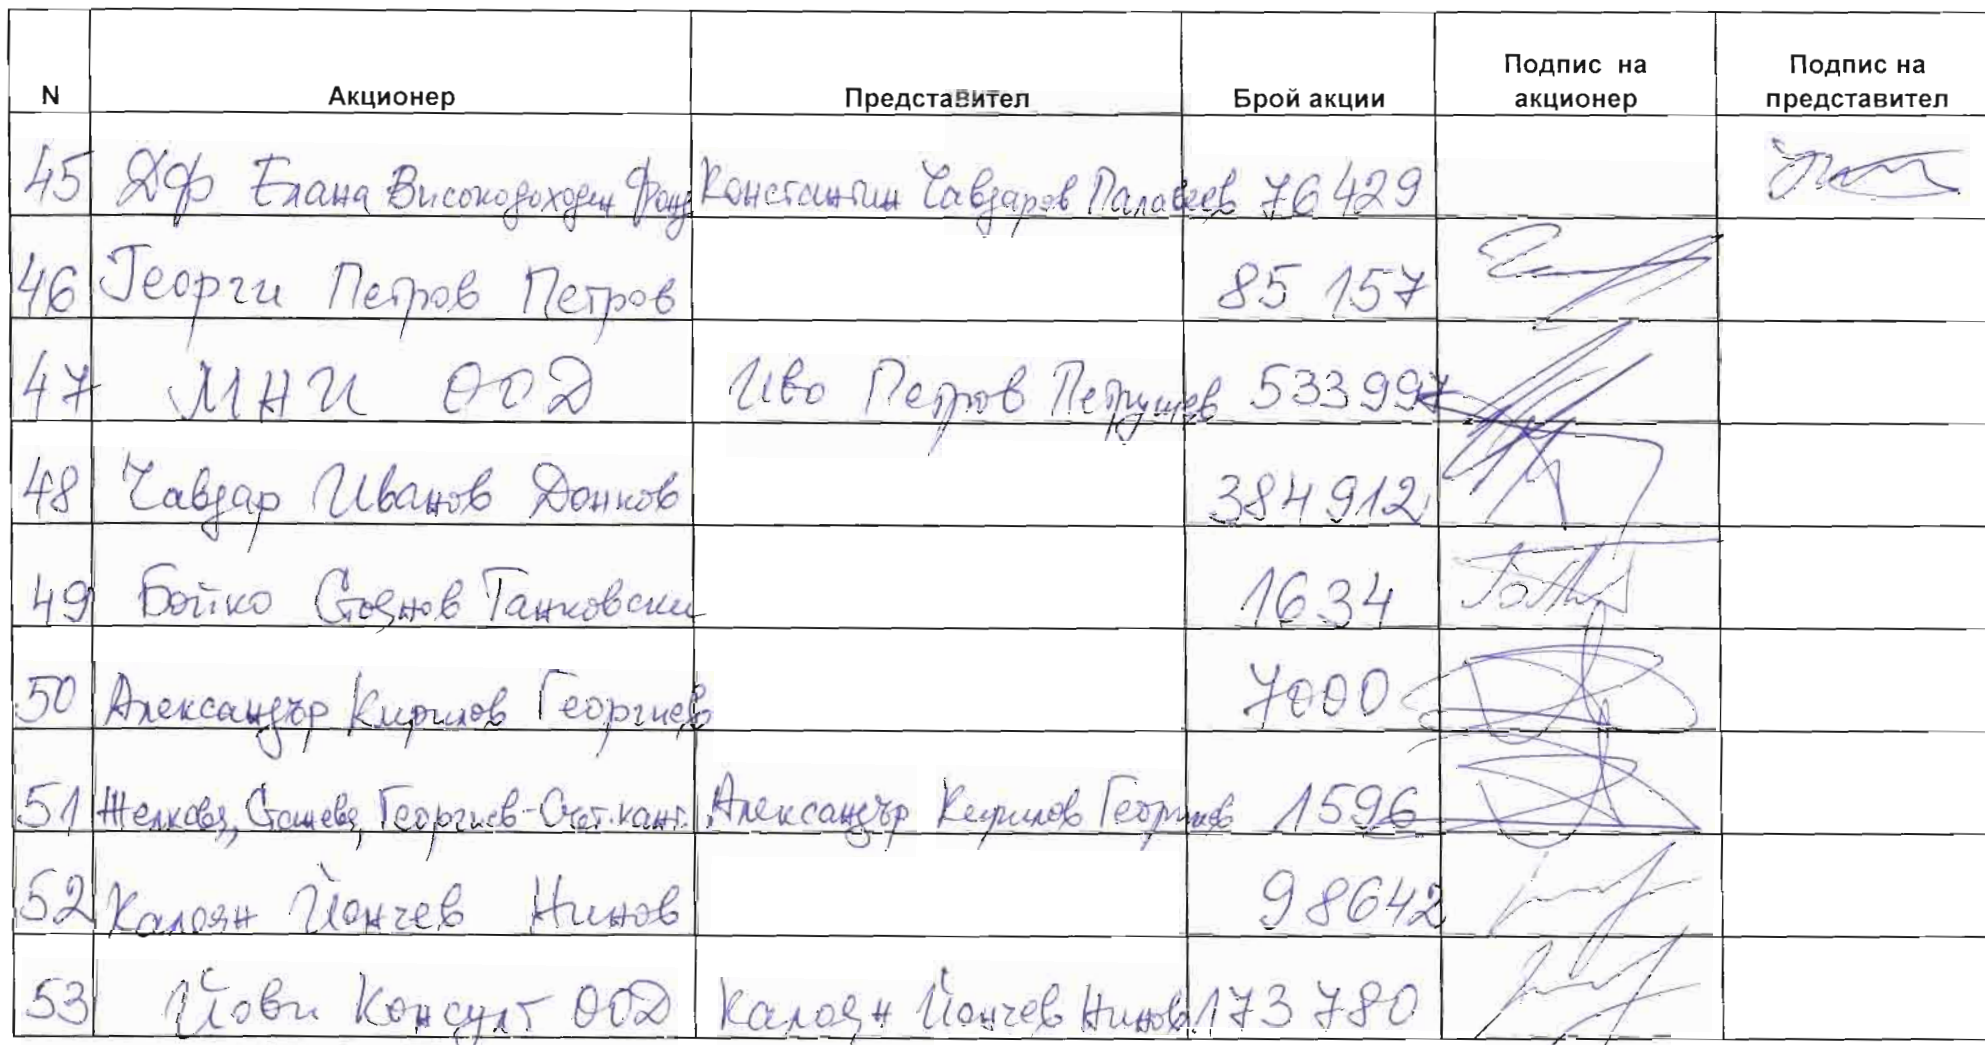 N Акционер Представител Брой акции Подпис на акционер Подпис на представител
45 ДФ Елана Високодоходен Фонд Константин Чавдаров Палавеев 76 429
46 Георги Петров Петров 85 157
47 МНИ ООД Иво Петров Петрушев 533997
48 Чавдар Иванов Донков 384 912
49 Бойко Стоянов Танковски 1634
50 Александър Кирилов Георгиев 7000
51 Желкова, Сташева, Георгиев-Счет.кант. Александър Кирилов Георгиев 1596
52 Калоян Йончев Нинов 98642
53 Йови Консулт ООД Калоян Йончев Нинов 173 780